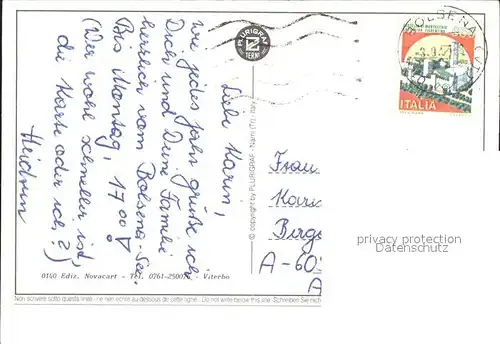 Liebe Karin,
wie jedes Jahr grüße ich
Dich und Deine Familie
herzlich vom Bolsena-See.
Bis Montag, 17.00!
(Wer wohl schneller ist,
die Karte oder ich?)
Heidrun
Frau
Kari
Birge
A-60
A
privacy protection
Datenschutz
PLURIGRAF
TERNI
© copyright by PLURIGRAF - Narni (Tr) - Italy
BOLSENA (VT)
ITALIA
0160 Ediz. Novacart - Tel. 0761-250076 - Viterbo
Non scrivere sotto questa linea - ne rien écrire au dessous de cette ligne - Do not write below this line - Schreiben Sie nicht